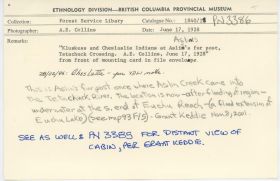 ETHNOLOGY DIVISION—BRITISH COLUMBIA PROVINCIAL MUSEUM
Location: Forest Service Library Catalogue No.: 1840/18 PN3386
Photographer: A.E. Collins Date: June 17, 1928
Remarks: Aslin's
"Kluskus and Chezlaslie Indians at Aslin's fur post,
Tetachuck Crossing. A.E. Collins, June 17, 1928"
from front of mounting card in file envelope
Cheslatta - you NDN note
This is Aslin's fur post once where Aslin Creek came into
the Tetachuck River. The location is now - after flooding of region -
under water at the s. end of Euchu Reach - (a flood extension of
Euchu Lake) (see map 93F/5). Grant Keddie Nov 8, 2001.
SEE AS WELL: PN 3389 FOR DISTANT VIEW OF
CABIN, PER GRANT KEDDIE.